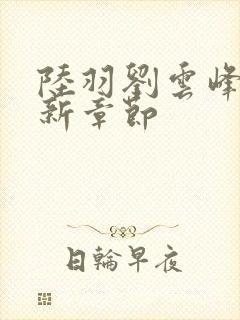 陸羽劉雲峰
新章節
日輪早夜